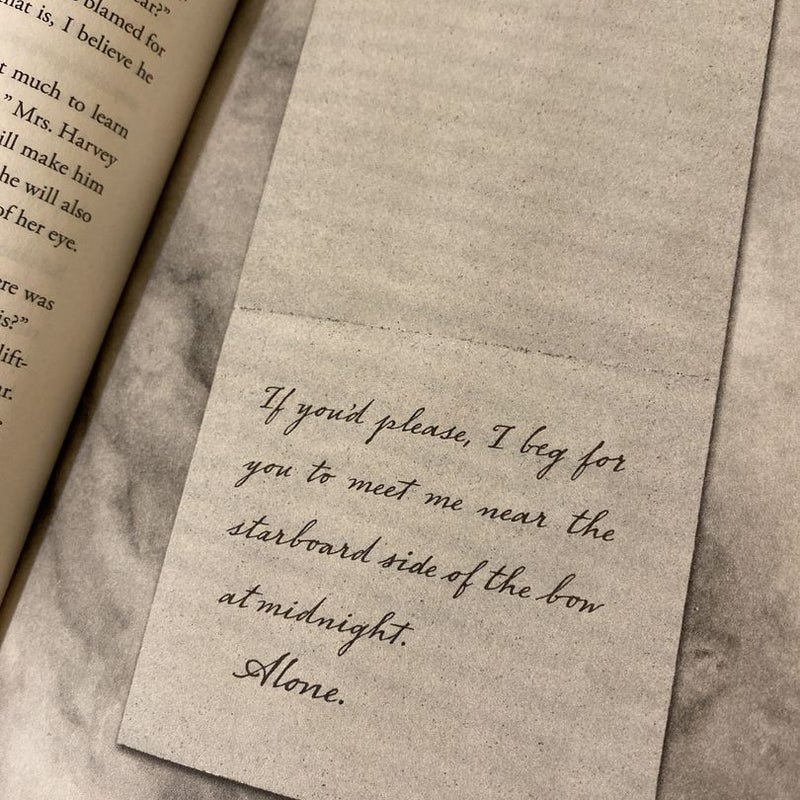 ear?”
blamed for
that is, I believe he
t much to learn
.” Mrs. Harvey
ill make him
he will also
of her eye.
ere was
is?”
lift-
ar.
If you'd please, I beg for
you to meet me near the
starboard side of the bow
at midnight.
Alone.